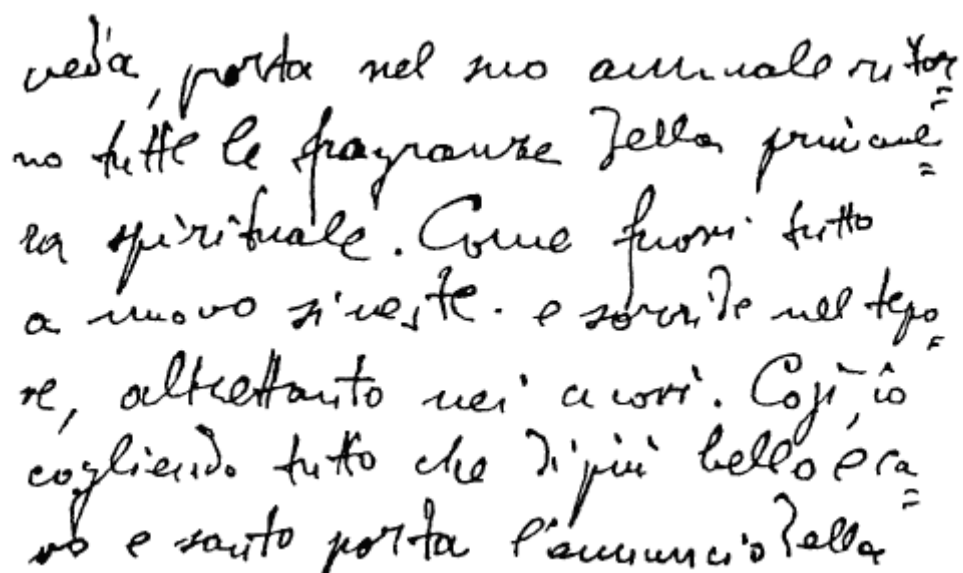 veda, porta nel suo annuale ritor=
no tutte le fragranze della primave=
ra spirituale. Come fuori tutto
a nuovo si veste. e sorride nel tepo=
re, altrettanto nei cuori. Così, io
cogliendo tutto che di più bello e ca=
ro e santo porta l'annuncio della